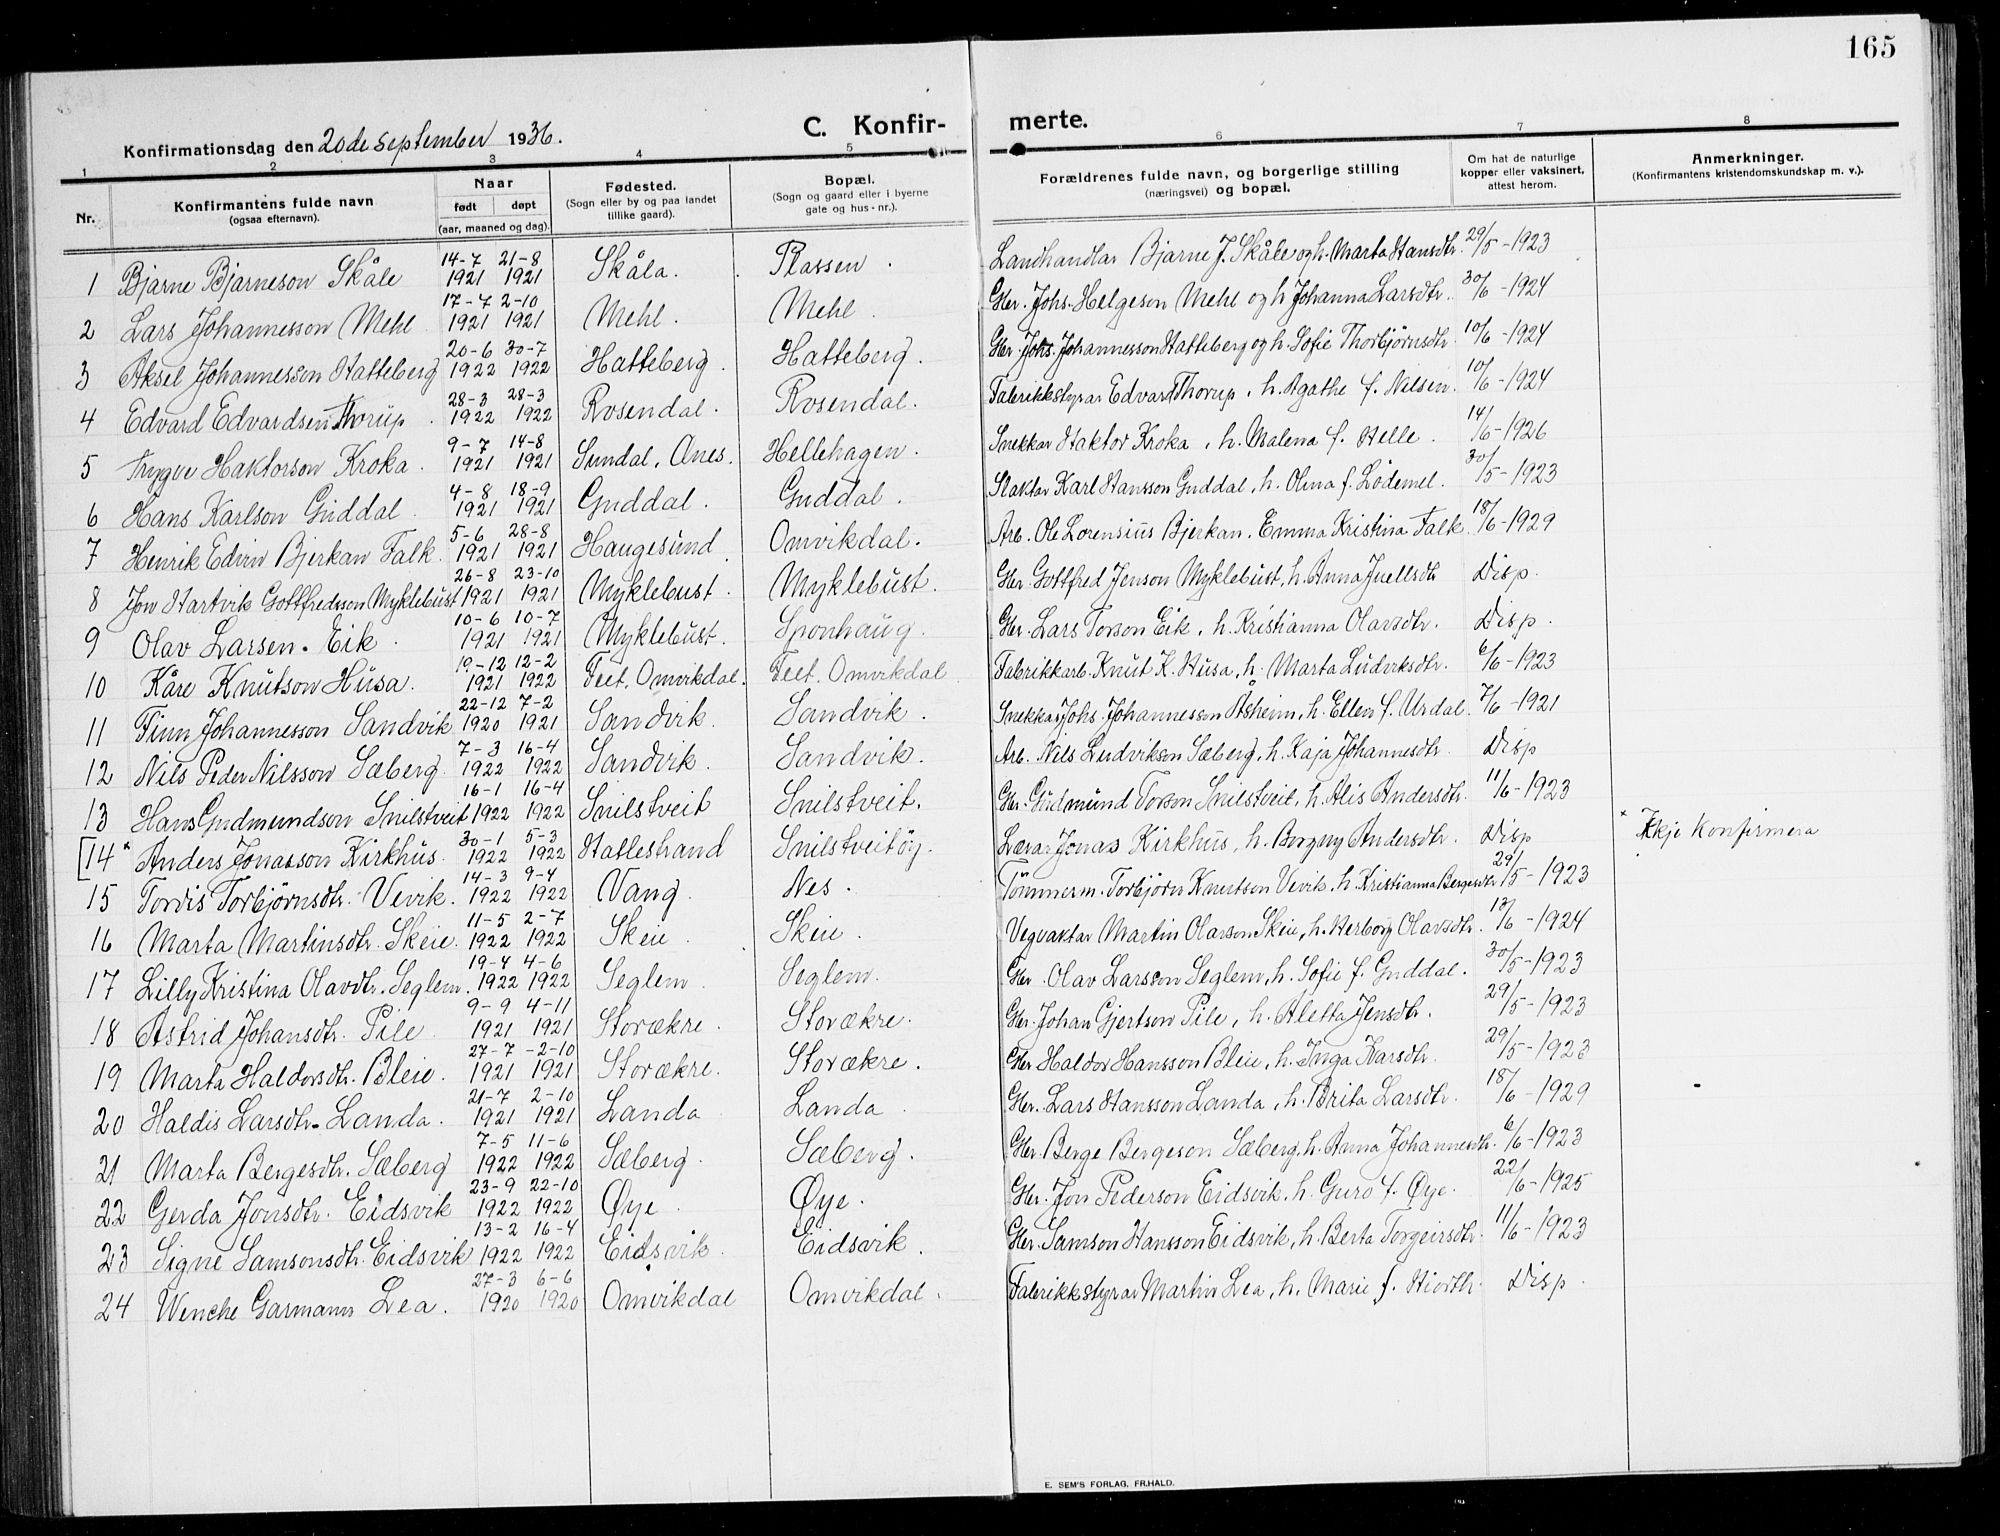 165
C. Konfirmerte.
Konfirmationsdag den 20de september 1936.
1 2 3 4 5 6 7 8
Nr. Konfirmantens fulde navn (ogsaa efternavn). Naar født døpt (aar, maaned og dag). Fødested. (Sogn eller by og paa landet tillike gaard). Bopæl. (Sogn og gaard eller i byerne gate og hus-nr.). Forældrenes fulde navn, og borgerlige stilling (næringsvei) og bopæl. Om hat de naturlige kopper eller vaksinert, attest herom. Anmerkninger. (Konfirmantens kristendomskundskap m. v.).
1 Bjarne Bjarneson Skåle 14-7 1921 21-8 1921 Skåla. Plassen. Landhandlar Bjarne J. Skåle og h. Marta Hansdtr. 29/5-1923
2 Lars Johannesson Mehl 17-7 1921 2-10 1921 Mehl. Mehl. Gbr. Johs. Helgeson Mehl og h. Johanna Larsdtr. 30/6-1924
3 Aksel Johannesson Hatteberg 20-6 1922 30-7 1922 Hatteberg. Hatteberg. Gbr. Johs. Johannesson Hatteberg og h. Sofie Thorbjørnsdtr. 10/6-1924
4 Edvard Edvardsen Thorup. 28-3 1922 28-3 1922 Rosendal. Rosendal. Fabrikkstyrar Edvard Thorup, h. Agathe f. Nilsen. 10/6-1924
5 Trygve Haktorson Kroka. 9-7 1921 14-8 1921 Sundal, Ånes. Hellehagen. Snekkar Haktor Kroka, h. Malena f. Helle. 14/6-1926
6 Hans Karlson Guddal. 4-8 1921 18-9 1921 Guddal. Guddal. Slaktar Karl Hansson Guddal, h. Olina f. Lødemel. 30/5-1923
7 Henrik Edvin Bjerkan Falk. 5-6 1921 28-8 1921 Haugesund Omvikdal. Arb. Ole Lorensius Bjerkan. Emma Kristina Falk. 18/6-1929
8 Jon Hartvik Gottfredsson Myklebust 26-8 1921 23-10 1921 Myklebust. Myklebust. Gbr. Gottfred Jenson Myklebust, h. Anna Juellsdtr Disp.
9 Olav Larsen Eik. 10-6 1921 10-7 1921 Myklebust. Sponhaug. Gbr. Lars Torson Eik, h. Kristianna Olavsdtr. Disp.
10 Kåre Knutson Husa. 19-12 1921 12-2 1922 Feet, Omvikdal. Feet, Omvikdal Fabrikkarb. Knut K. Husa, h. Marta Ludviksdtr. 6/6-1923
11 Finn Johannesson Sandvik 22-12 1920 7-2 1921 Sandvik. Sandvik. Snekkar Johs. Johannesson Åsheim, h. Ellen f. Urdal. 7/6-1921
12 Nils Peder Nilsson Sæberg. 7-3 1922 16-4 1922 Sandvik. Sandvik. Arb. Nils Ludvikson Sæberg, h. Kaja Johannesdtr. Disp
13 Hans Gudmundson Snilstveit 16-1 1922 16-4 1922 Snilstveit Snilstveit. Gbr. Gudmund Torson Snilstveit, h. Alis Andersdtr. 11/6-1923
[14* Anders Jonasson Kirkhus. 30-1 1922 5-3 1922 Hattestrand Snilstveitøy. Lærar Jonas Kirkhus, h. Borgny Andersdtr. Disp * Ikkje Konfirmera
15 Tordis Torbjørnsdtr. Vevik. 14-3 1922 9-4 1922 Vang. Nes. Tømmerm. Torbjørn Knutson Vevik, h. Kristianna Bergesdtr 29/5-1923
16 Marta Martinsdtr. Skeie. 11-5 1922 2-7 1922 Skeie. Skeie. Vegvaktar Martin Olarson Skeie, h. Herborg Olavsdtr. 12/6-1924
17 Lilly Kristina Olavdtr. Seglem. 19-4 1922 4-6 1922 Seglem. Seglem. Gbr. Olav Larsson Seglem, h. Sofie f. Guddal. 30/5-1923
18 Astrid Johansdtr. Pile. 9-9 1921 4-11 1921 Storækre. Storækre. Gbr. Johan Gjertson Pile, h. Aletta Jensdtr. 29/5-1923
19 Marta Haldorsdtr. Bleie. 27-7 1921 2-10 1921 Storækre. Storækre. Gbr. Haldor Hansson Bleie, h. Inga Karsdtr. 29/5-1923
20 Haldis Larsdtr. Landa. 21-7 1921 2-10 1921 Landa Landa. Gbr. Lars Hansson Landa, h. Brita Larsdtr. 18/6-1929
21 Marta Bergesdtr. Sæberg 7-5 1922 11-6 1922 Sæberg. Sæberg. Gbr. Berge Bergeson Sæberg, h. Anna Johannesdtr. 6/6-1923
22 Gerda Jonsdtr. Eidsvik 23-9 1922 22-10 1922 Øye. Øye. Gbr. Jon Pederson Eidsvik, h. Guro f. Øye. 22/6-1925
23 Signe Samsonsdtr. Eidsvik 13-2 1922 16-4 1922 Eidsvik. Eidsvik. Gbr. Samson Hansson Eidsvik, h. Berta Torgeirsdtr. 11/6-1923
24 Wenche Garmann Lea. 27-3 1920 6-6 1920 Omvikdal Omvikdal. Fabrikkstyrar Martin Lea, h. Marie f. Hiorth. Disp.
E. SEM'S FORLAG, FR.HALD.